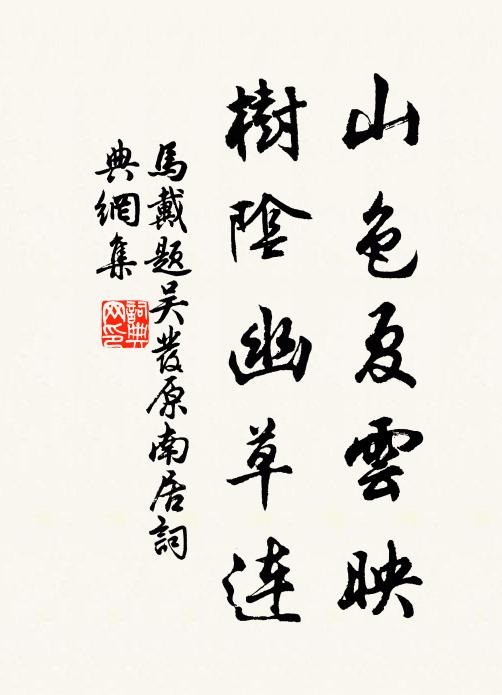 山色夏雲映
樹陰幽草連
馬戴題吴發原南居詞
典網集
詞典
网印